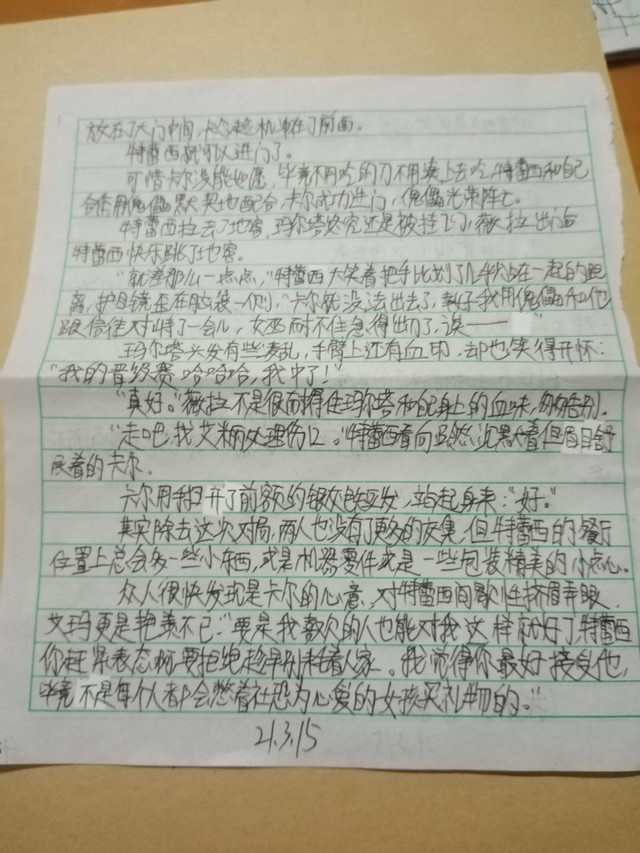 放在了大门中间,卡尔趁机单在了前面。
特蕾西就可以进门了。
可惜卡尔没能如愿,毕竟不用吃的刀不用凑上去吃,特蕾西和自己
会用傀儡默契地配合,卡尔成功进门,傀儡光荣阵亡。
特蕾西拉去了地窖,玛尔塔还是被挂飞了,薇拉出门后
特蕾西快乐跳了地窖。
"就差那么一点点,"特蕾西大笑着把手比划了几乎粘在一起的距
离,护目镜歪在脑袋一侧,"卡尔就没法出去了,幸好我用傀儡和他
跟信徒对峙了一会儿,女巫耐不住急得出刀了,诶——"
玛尔塔头发有些凌乱,手臂上还有血印,却也笑得开怀:
"我的晋级赛哈哈哈,我中了!"
"真好。"薇拉不是很耐得住玛尔塔和自己身上的血味,匆匆告别。
"走吧,找艾米丽处理伤口。"特蕾西看向虽然沉默着但眉目舒
展着的卡尔。
卡尔用手扫开了前额的银灰色头发,站起身来:"好。"
其实除去这次对局,两人也没有了更多的交集,但特蕾西的餐厅
位置上总会多一些小东西,或是机器零件或是一些包装精美的小点心。
众人很快发现是卡尔的心意,对特蕾西间歇性挤眉弄眼,
艾玛更是艳羡不已:"要是我喜欢的人也能对我这样就好了,特蕾西
你赶紧表态啊,要拒绝趁早别耗着人家。我觉得你最好接受他,
毕竟不是每个人都会憋着社恐为心爱的女孩买礼物的。"
21.3.15